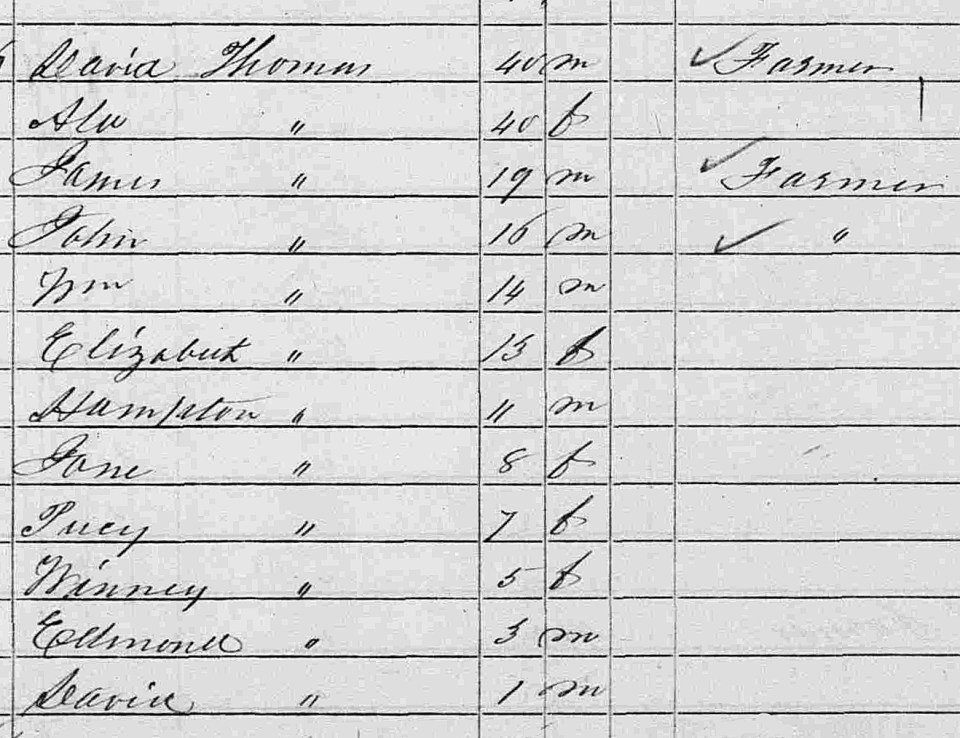 David Thomas 40 m Farmer
" 40 f
James " 19 m Farmer
John " 16 m "
Wm " 14 m
Elizabeth " 13 f
Hampton " 11 m
Jane " 8 f
" 7 f
Winney " 5 f
Edmond " 3 m
David " 1 m